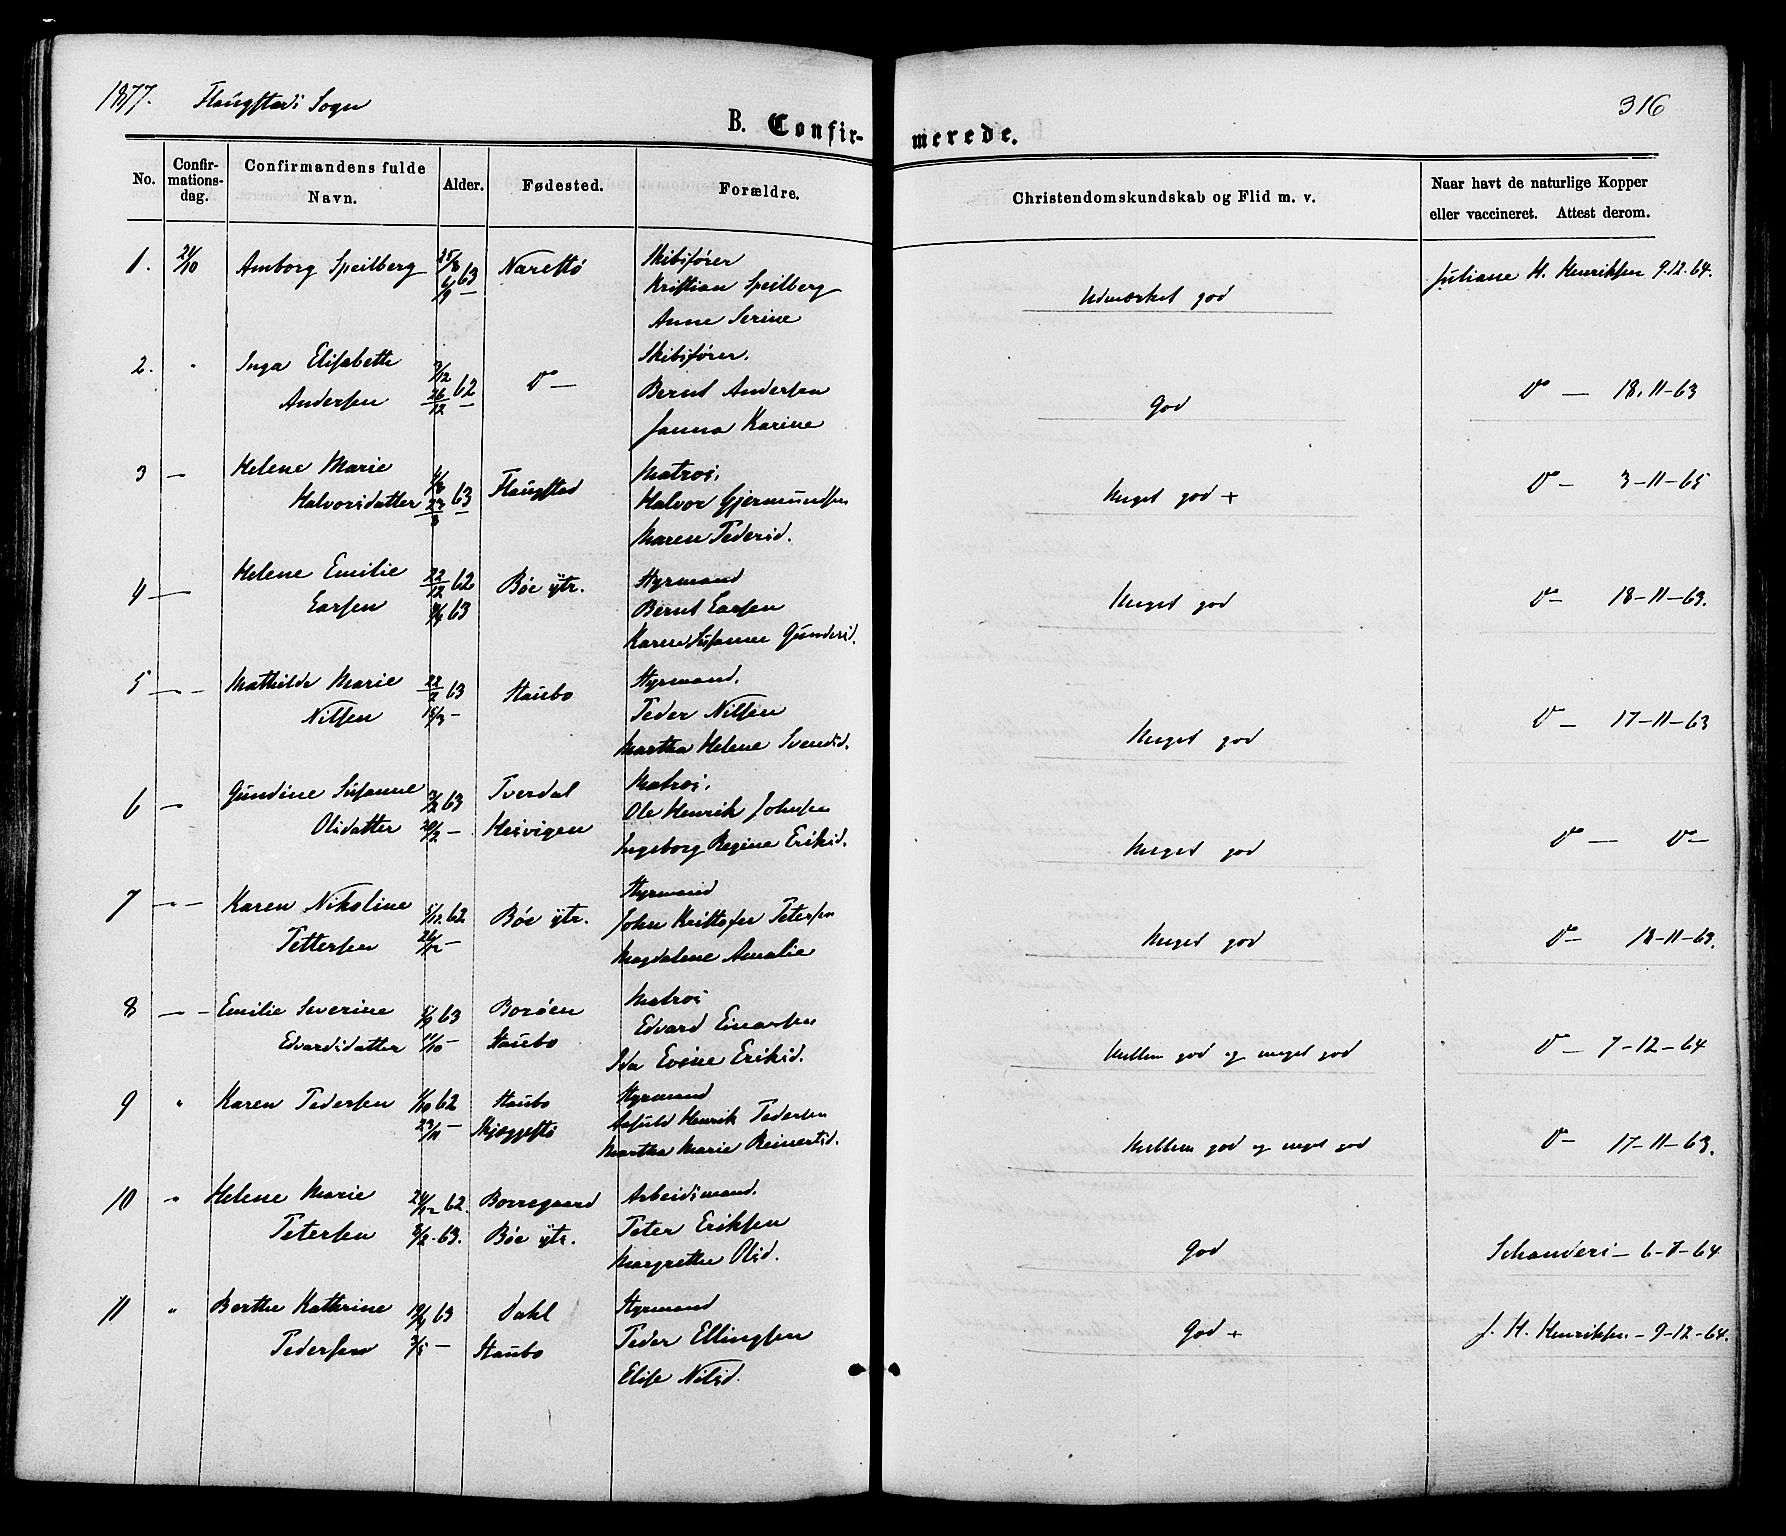 1877. Flaugstads Sogn
316
B. Confirmerede.
No.
Confirmations-dag.
Confirmandens fulde Navn.
Alder.
Fødested.
Forældre.
Christendomskundskab og Flid m. v.
Naar havt de naturlige Kopper
eller vaccineret. Attest derom.
1. 21/10 Amborg Speilberg 63 Narestø Skibsfører
Kristian Speilberg
Anne Serine
Udmærket god
Juliane H. Henriksen 9.12.64.
2. " Inga Elisabeth
Andersen
3/12 26/12 62 D— Skibsfører.
Bernt Andersen
Janna Karine
God
D — 18.11-63
3 — Helene Marie
Halvorsdatter
63 Flaugstad Matros.
Halvor Gjermundsen
Maren Pedersd.
Meget god +
D — 3-11-65
4 — Helene Emilie
Larsen
22/12 62
63
Bøe ytr. Styrmand
Bernt Larsen
Karen Susanne Gundersd.
Meget god
D — 18-11-63.
5 — Mathilde Marie
Nilsen
22/2 63
15/3 —
Staubo Styrmand.
Peder Nilsen
Martha Helene Svendsd.
Meget god
D — 17-11-63
6 — Gundine Susanne
Olsdatter
63
Tverdal
Hesvigen
Matros.
Ole Henrik Johnsen
Ingeborg Regine Eriksd.
Meget god
D — D—
7 — Karen Nikoline
Pettersen
62
Bøe ytr. Styrmand
John Kristofer Petersen
Magdalene Amalie
Meget god
D — 18-11-63.
8 — Emilie Severine
Edvardsdatter
63
11/10 —
Borøen
Staubo
Matros
Edvard Einarsen
Ida Evine Eriksd.
Mellem god og meget god
D — 7-12-64
9 " Karen Pedersen 62
23/11 —
Staubo
Skjæggestø
Styrmand
Henrik Pedersen
Martha Marie Reinertsd.
Mellem god og meget god
D — 17-11-63.
10 " Helene Marie
Petersen
24/12 62.
8/2 - 63.
Borregaard
Bøe ytr.
Arbeidsmand.
Peter Eriksen
Margrethe Olsd.
God
Schanders — 6-7-64
11 " Berthe Kathrine
Pedersen
63
3/5 —
Dahl
Staubo
Styrmand
Peder Ellingsen
Elise Nilsd.
God +
J. H. Henriksen — 9-12-64.